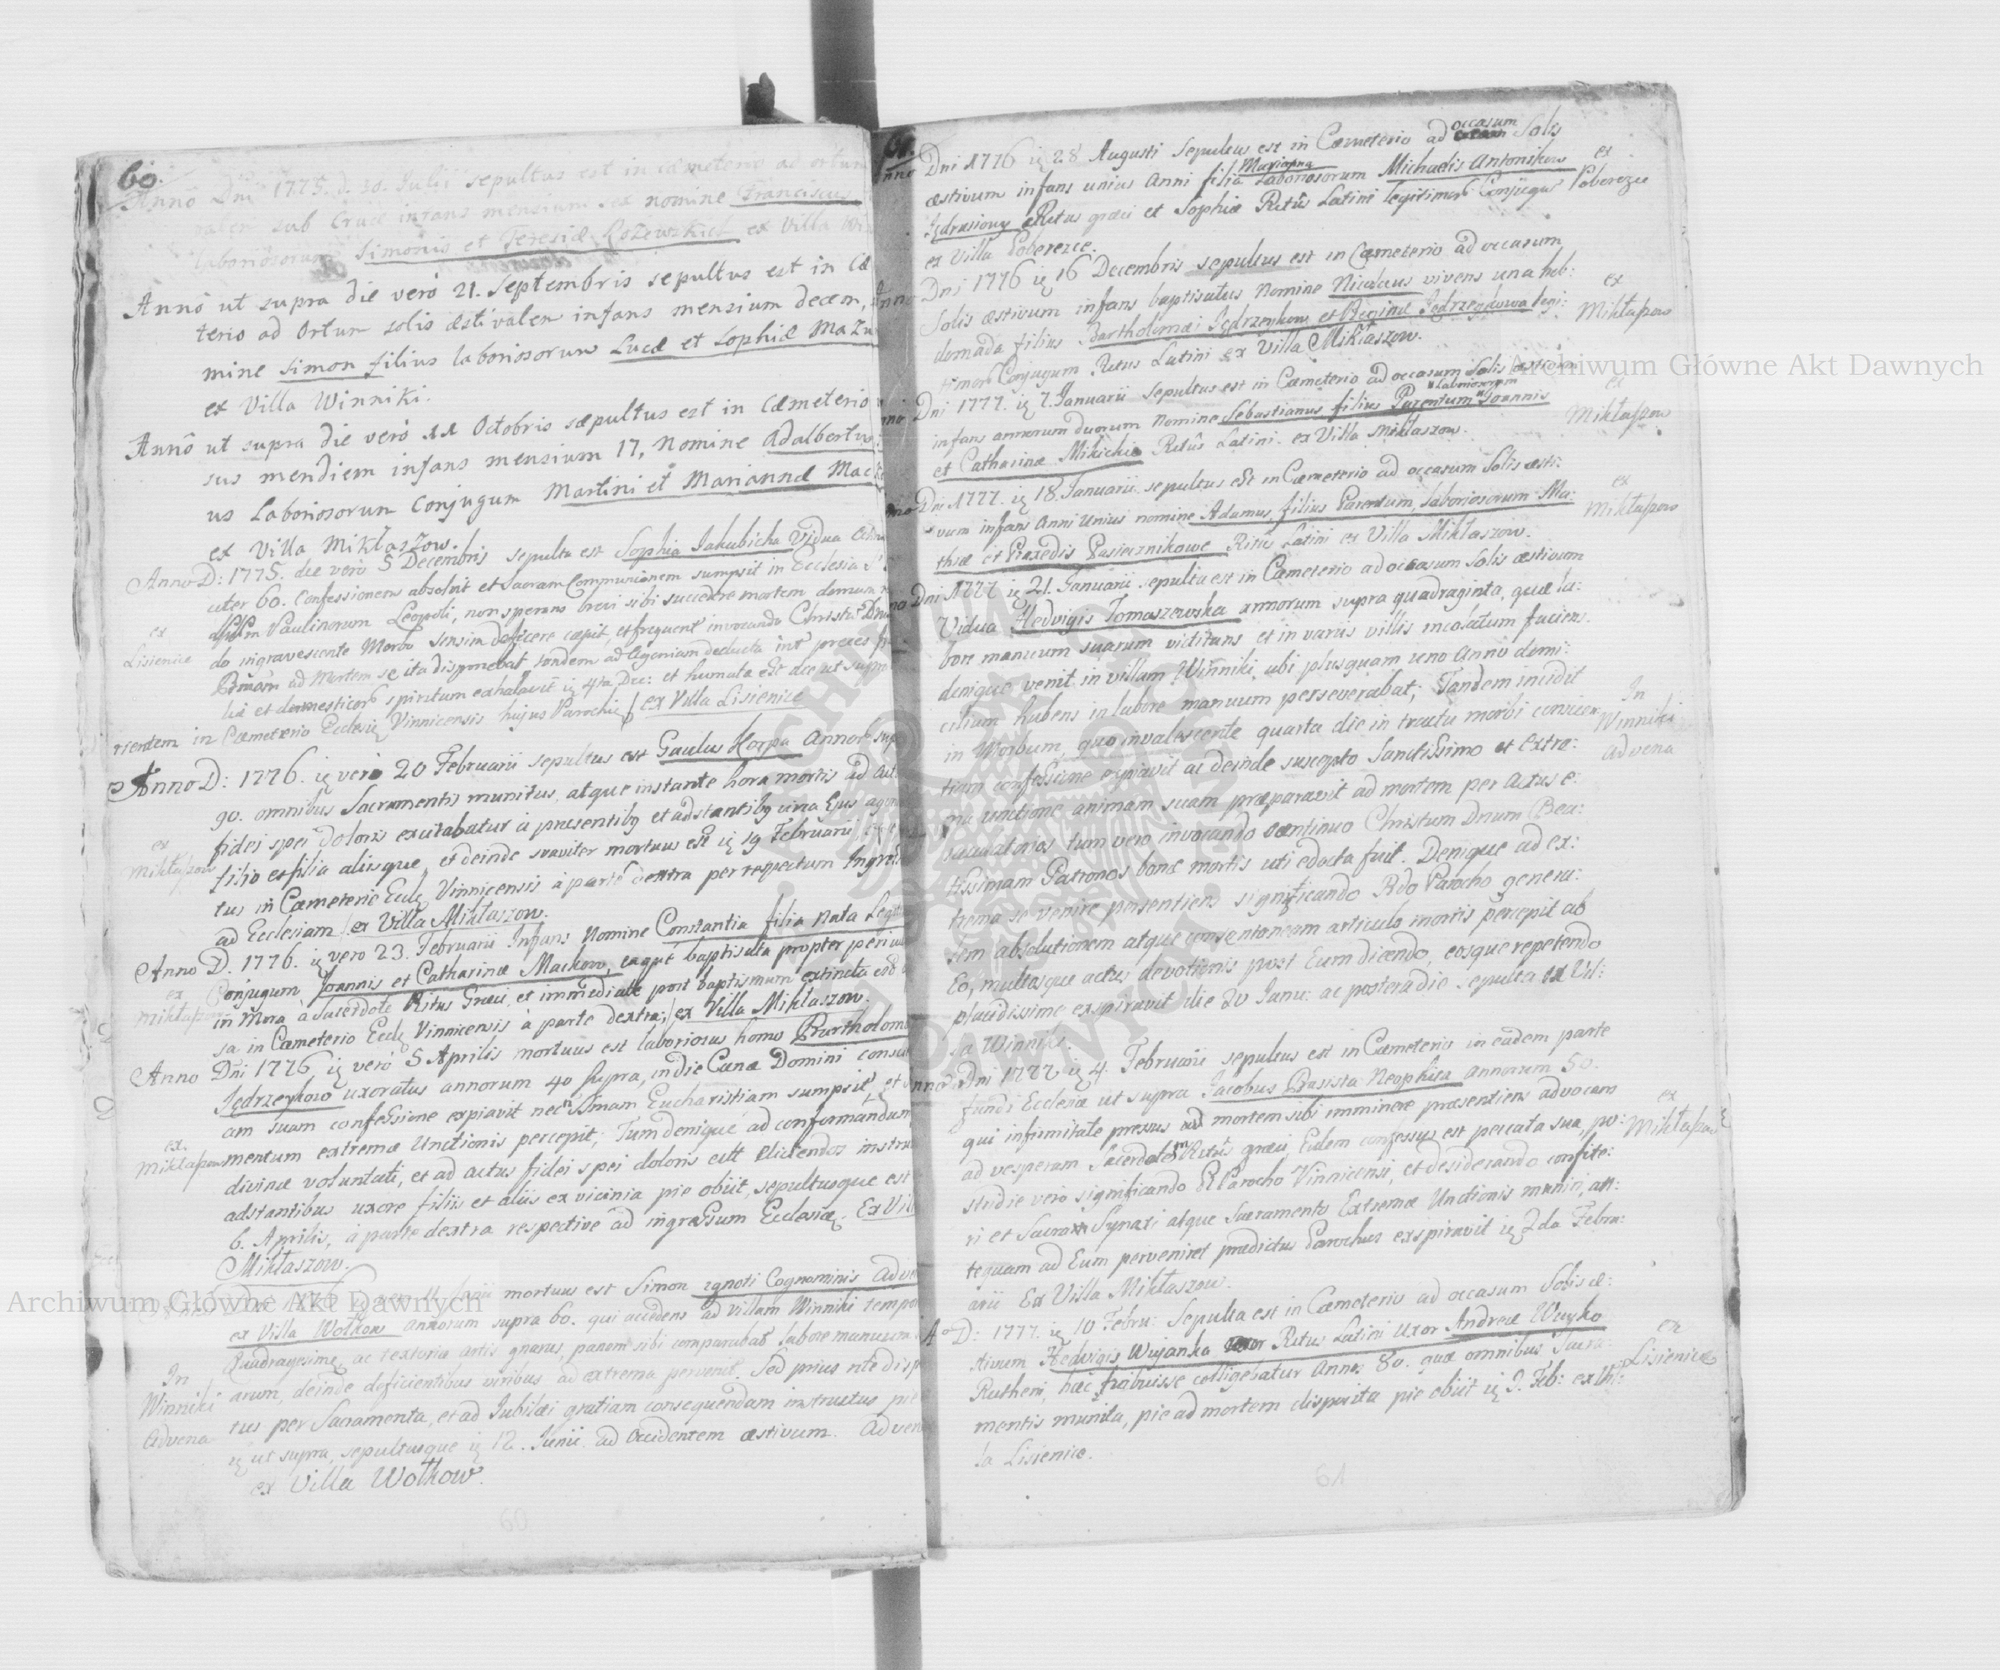 60.
Anno Dni 1775. d. 30. Julii sepultus est in cæmeterio ad ortum
valem sub Cruce infans mensium sex nomine Franciscus
laboriosorum Simonis et Teresiæ Rozewskich ex Villa Wi
Annô ut supra die verò 21. Septembris sepultus est in Cæ
terio ad Ortum solis æstivalem infans mensium decem,
mine Simon filius laboriosorum Lucæ et Sophiæ Mazu
ex Villa Winniki.
Annô ut supra die verò 11 Octobris sæpultus est in Cæmeterio
sus meridiem infans mensium 17, Nomine Adalbertus
us Laboriosorum Conjugum Martini et Mariannæ Mac
ex Villa Mikłaszow.
Anno D: 1775. die verò 5 Decembris sepulta est Sophia Jakubicha Vidua
citer 60. Confessionem absolvit et Sacram Communionem sumpsit in Ecclesia
Paulinorum Leopoli, non sperans brevi sibi succedere mortem domum
ex
Lisienice
do ingravescente Morbo sensim deficere cæpit, et frequent invocando Christu Dnum
ad Mortem se ita disponebat, tandem ad Agoniam deducta int preces
liæ et domesticor spiritum exhalavit 4ta Dec: et humata est die ut supra
rientem in Cæmeterio Ecclesiæ Vinnicensis hujus Parochiæ / ex Villa Lisienice
Anno D: 1776. verò 20 Februarii sepultus est Paulus Korpa Annor sup
90. omnibus Sacramentis munitus, atque instante hora mortis ad act
fidei spei doloris excitabatur à præsentibg et adstantibg una Ejus
ex
Mikłaszow
filio et filia aliisque, et deinde suaviter mortuus est 19 Februarii,
tus in Cæmeterio Eccle Vinnicensis à parte dextra per respectum Ingres
ad Ecclesiam / ex Villa Mikłaszow.
Anno D. 1776. vero 23. Februarii Infans Nomine Constantia filia nata Legit
Conjugum Joannis et Catharinæ Mackow, baptisata propter pericul
ex
Mikłaszow
in Mora à Sacerdote Ritus Græci, et immediate post baptismum extincta est
sa in Cæmeterio Eccle Vinnicensis à parte dextra; / ex Villa Mikłaszow.
Anno Dni 1776 verò 5 Aprilis mortuus est laboriosus homo Bartholom
Jędrzeykow uxoratus annorum 40 supra, in die Cænæ Domini
am suam confessione expiavit nec Smam Eucharistiam sumpsit, et
mentum extremæ Unctionis percepit; Tum denique ad conformandum
ex
Mikłaszow
divinæ voluntati, et ad actus fidei spei doloris elicendos instru
adstantibus uxore filiis et aliis ex vicinia pie obiit, sepultusque est
6. Aprilis, à parte dextra respective ad ingressum Ecclesiæ. Ex Vil
Mikłaszow.
Dni 1776 vero 11 Junii mortuus est Simon ignoti Cognominis Adve
ex Villa Wołkow annorum supra 60. qui accedens ad Villam Winniki tempo
Quadragesimæ ac textoriæ artis gnarus, panem sibi comparabat labore manuum
In
Winniki
Advena
arum, deinde deficientibus viribus ad extrema pervenit. Sed prius rite disp
tus per Sacramenta, et ad Jubilæi gratiam consequendam instructus pie
ut supra, sepultusque 12. Junii ad Occidentem æstivum. Adven
ex Villa Wołkow.
60
61.
Anno Dni 1776 28 Augusti Sepultus est in Cæmeterio ad occasum Solis
æstivum infans unius Anni filia Marianna Laboriosorum Michaelis Antonikow
ex
Poberezce
Jędrasiowy Ritus græci et Sophiæ Ritûs Latini legitimor Conjugu
ex Villa Poberezce.
Anno Dni 1776 16 Decembris sepultus est in Cæmeterio ad occasum
Solis æstivum infans baptisatus Nomine Nicolaus vivens una heb:
ex
Mikłaszow
domada filius Bartholomæi Jędrzeykow et Reginæ Jędrzeykowa legi:
timor Conjugum Ritus Latini ex Villa Mikłaszow.
Anno Dni 1777. 7. Januarii Sepultus est in Cæmeterio ad occasum Solis æstivum
infans annorum duorum Nomine Sebastianus filius Parentum laboriosorum Joannis
ex
Mikłaszow
et Catharinæ Mikichie Ritûs Latini. ex Villa Mikłaszow.
Anno Dni 1777. 18. Januarii sepultus est in Cæmeterio ad occasum Solis æsti:
vum infans Anni Unius nomine Adamus, filius Parentum, laboriosorum Ma:
ex
Mikłaszow
thiæ et Praxedis Pasiecznikowe Ritûs Latini ex Villa Mikłaszow.
Anno Dni 1777 21. Januarii sepulta est in Cæmeterio ad occasum Solis æstivum
Vidua Hedvigis Tomaszewska annorum supra quadraginta, quæ la:
bore manuum suarum victitans et in variis villis incolatum faciens.
denique venit in villam Winniki, ubi plusquam uno Anno domi:
cilium habens in labore manuum perseverabat; Tandem incidit
In
Winniki
advena
in Morbum, quo invalescente quarta die in tractu morbi
tiam confessione expiavit ac deinde suscepto Sanctissimo et Extre:
ma unctione animam suam præparavit ad mortem per Actus
tum vero invocando continuo Christum Dnum Bea:
tissimam Patronos bonæ mortis uti edocta fuit. Denique ad ex:
trema se venire persentiens significando Rdo Parocho genera:
lem absolutionem atque consentaneam articulo mortis percepit ab
Eo, multasque actus devotionis post Eum dicendo, eosque repetendo
placidissime expiravit die 20 Janu: ac postera die sepulta ex Vil:
la Winniki.
Anno Dni 1777 4. Februarii sepultus est in Cæmeterio in eadem parte
fundi Ecclesiæ ut supra Jacobus Basista Neophita annorum 50.
ex
Mikłaszow
qui infirmitate pressus mortem sibi imminere præsentiens advocans
ad vesperam Sacerdotem Ritus græci, Eidem confessus est peccata sua, po:
stridie vero significando Parocho Vinnicensi, et desiderando confite:
ri et Sacra Synaxi atque Sacramento Extremæ Unctionis muniri, an:
tequam ad Eum perveniret prædictus Parochus exspiravit 2da Febru:
arii Ex Villa Mikłaszow.
Ao D: 1777. 10 Febru: Sepulta est in Cæmeterio ad occasum Solis æ:
stivum Hedvigis Wuyanka Ritus Latini Uxor Andreæ Wuyko
ex
Lisienice
Rutheni, hæc habuisse colligebatur Annos 80. quæ omnibus Sacra:
mentis munita, pie ad mortem disposita pie obiit 9. Feb: ex Vil:
la Lisienice.
61
Archiwum Główne Akt Dawnych
Archiwum Główne Akt Dawnych